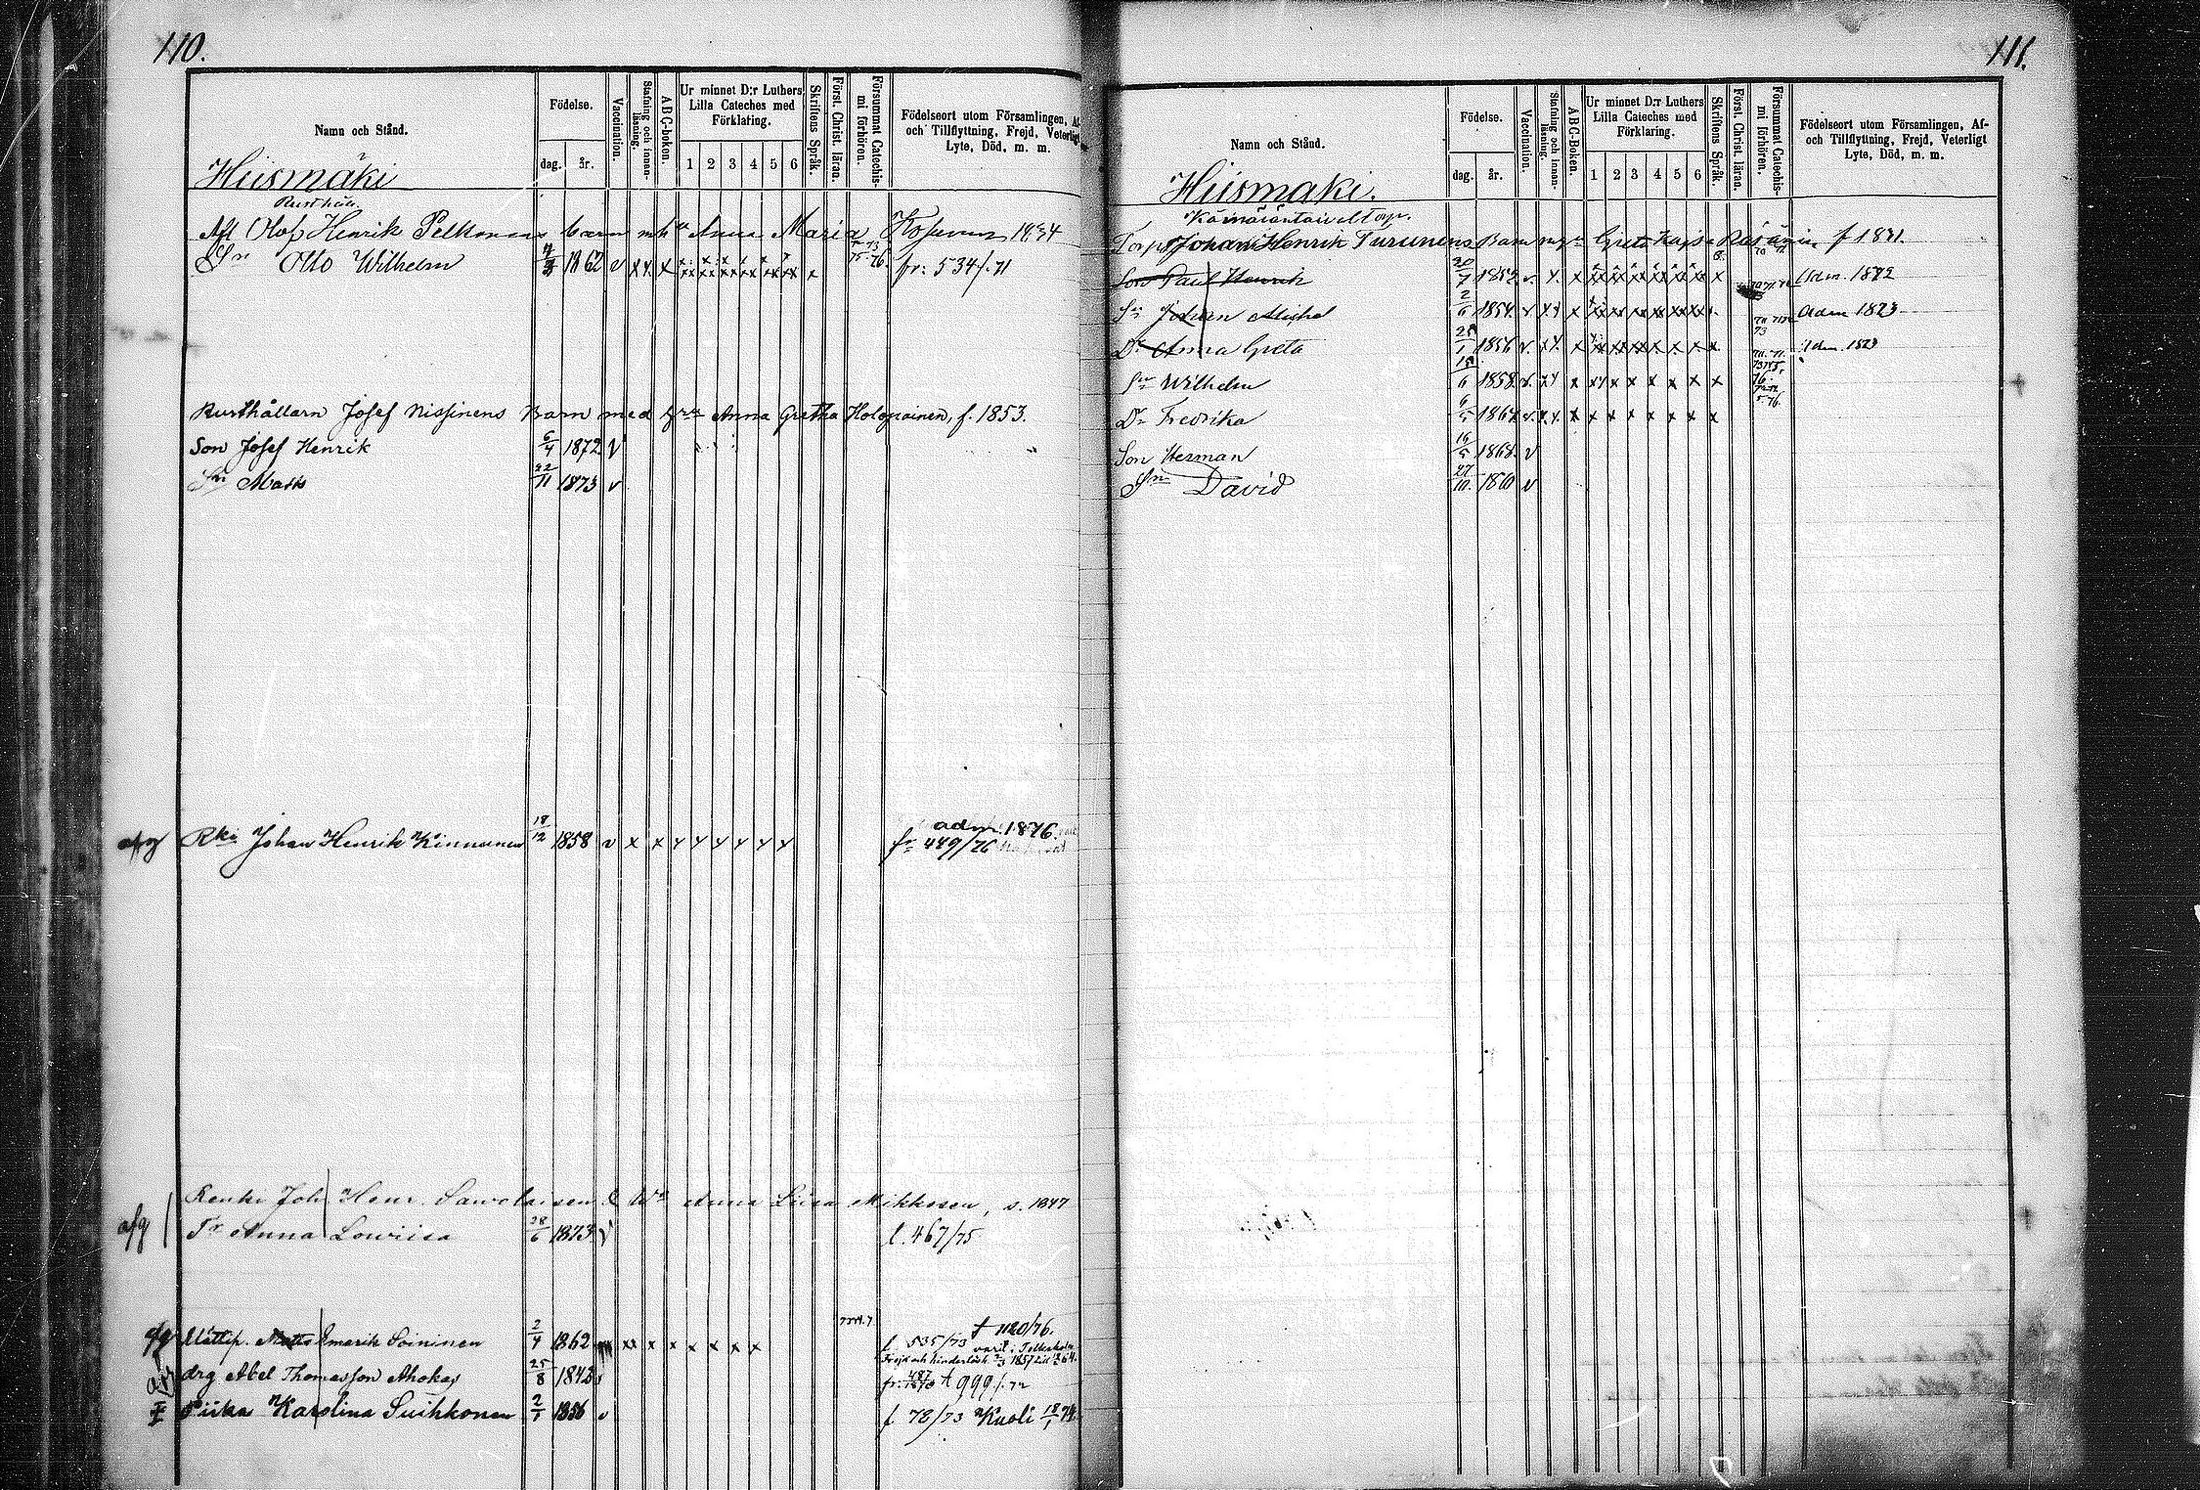 110.
Namn och Stånd.
Födelse.
dag. år.
Vaccination.
Stafning och innan-läsning.
ABC-boken.
Ur minnet D:r Luthers Lilla Cateches med Förklaring.
1 2 3 4 5 6
Skriftens Språk.
Först. Christ. läran.
Försummat Catechis-mi förhören.
Födelseort utom Församlingen, Af-
och Tillflyttning, Frejd, Veterligt
Lyte, Död, m. m.
Hiismäki
Rusthåll.
Olof Henrik Pelkonens barn m h Anna Maria Kosunen 1834
Sn Otto Wilhelm 1862 v xx x x fr. 534/.71
Rusthållarn Josef Nissinens Barn med Anna Gretha Holopainen, f. 1853.
Son Josef Henrik 6/4 1872 v
Sn Matts 22/11 1873 v
afg Johan Henrik Kinnunen 18/12 1858 v x x x x x x x x adm. 1876.
fr 449/76
Renki Joh Henr. Sawolaisen & Wo Anna Liisa Mikkosen, s. 1847
afg Tr Anna Lowiisa 28/6 1873 v l. 467/75
afg Matts Emerik Soininen 2/4 1862 xx x x x x x x f 535/73 t 1120/76.
drg Abel Thomasson Ahokas 25/8 1842 t 999/.72
Piika Karolina Suihkonen 1856 v f 78/73 Kuoli 18/1 74.
111.
Namn och Stånd.
Födelse.
dag. år.
Vaccination.
Stafning och innan-läsning.
ABC-Boken.
Ur minnet D:r Luthers Lilla Cateches med Förklaring.
1 2 3 4 5 6
Skriftens Språk.
Först. Christ. läran.
Försummat Catechis-mi förhören.
Födelseort utom Församlingen, Af-
och Tillflyttning, Frejd, Veterligt
Lyte, Död, m. m.
Hiismäki.
Torp Johan Henrik Turunens Barn Greta Kajsa Räsänen f 1821.
Son Paul Henrik 20/7 1852. v. x. x Adm. 1872
Sn Johan Michel 2/6 1854. v xx x Adm 1873
Dr Anna Greta 1856 v. xx. x Adm. 1873
Sn Wilhelm 1858. v. xx x xx x x x x x x
Dr Fredrika 1864. v. x.x x x x x x x x x
Son Herman 16/5 1868. v
Sn David 27/10. 1860 v